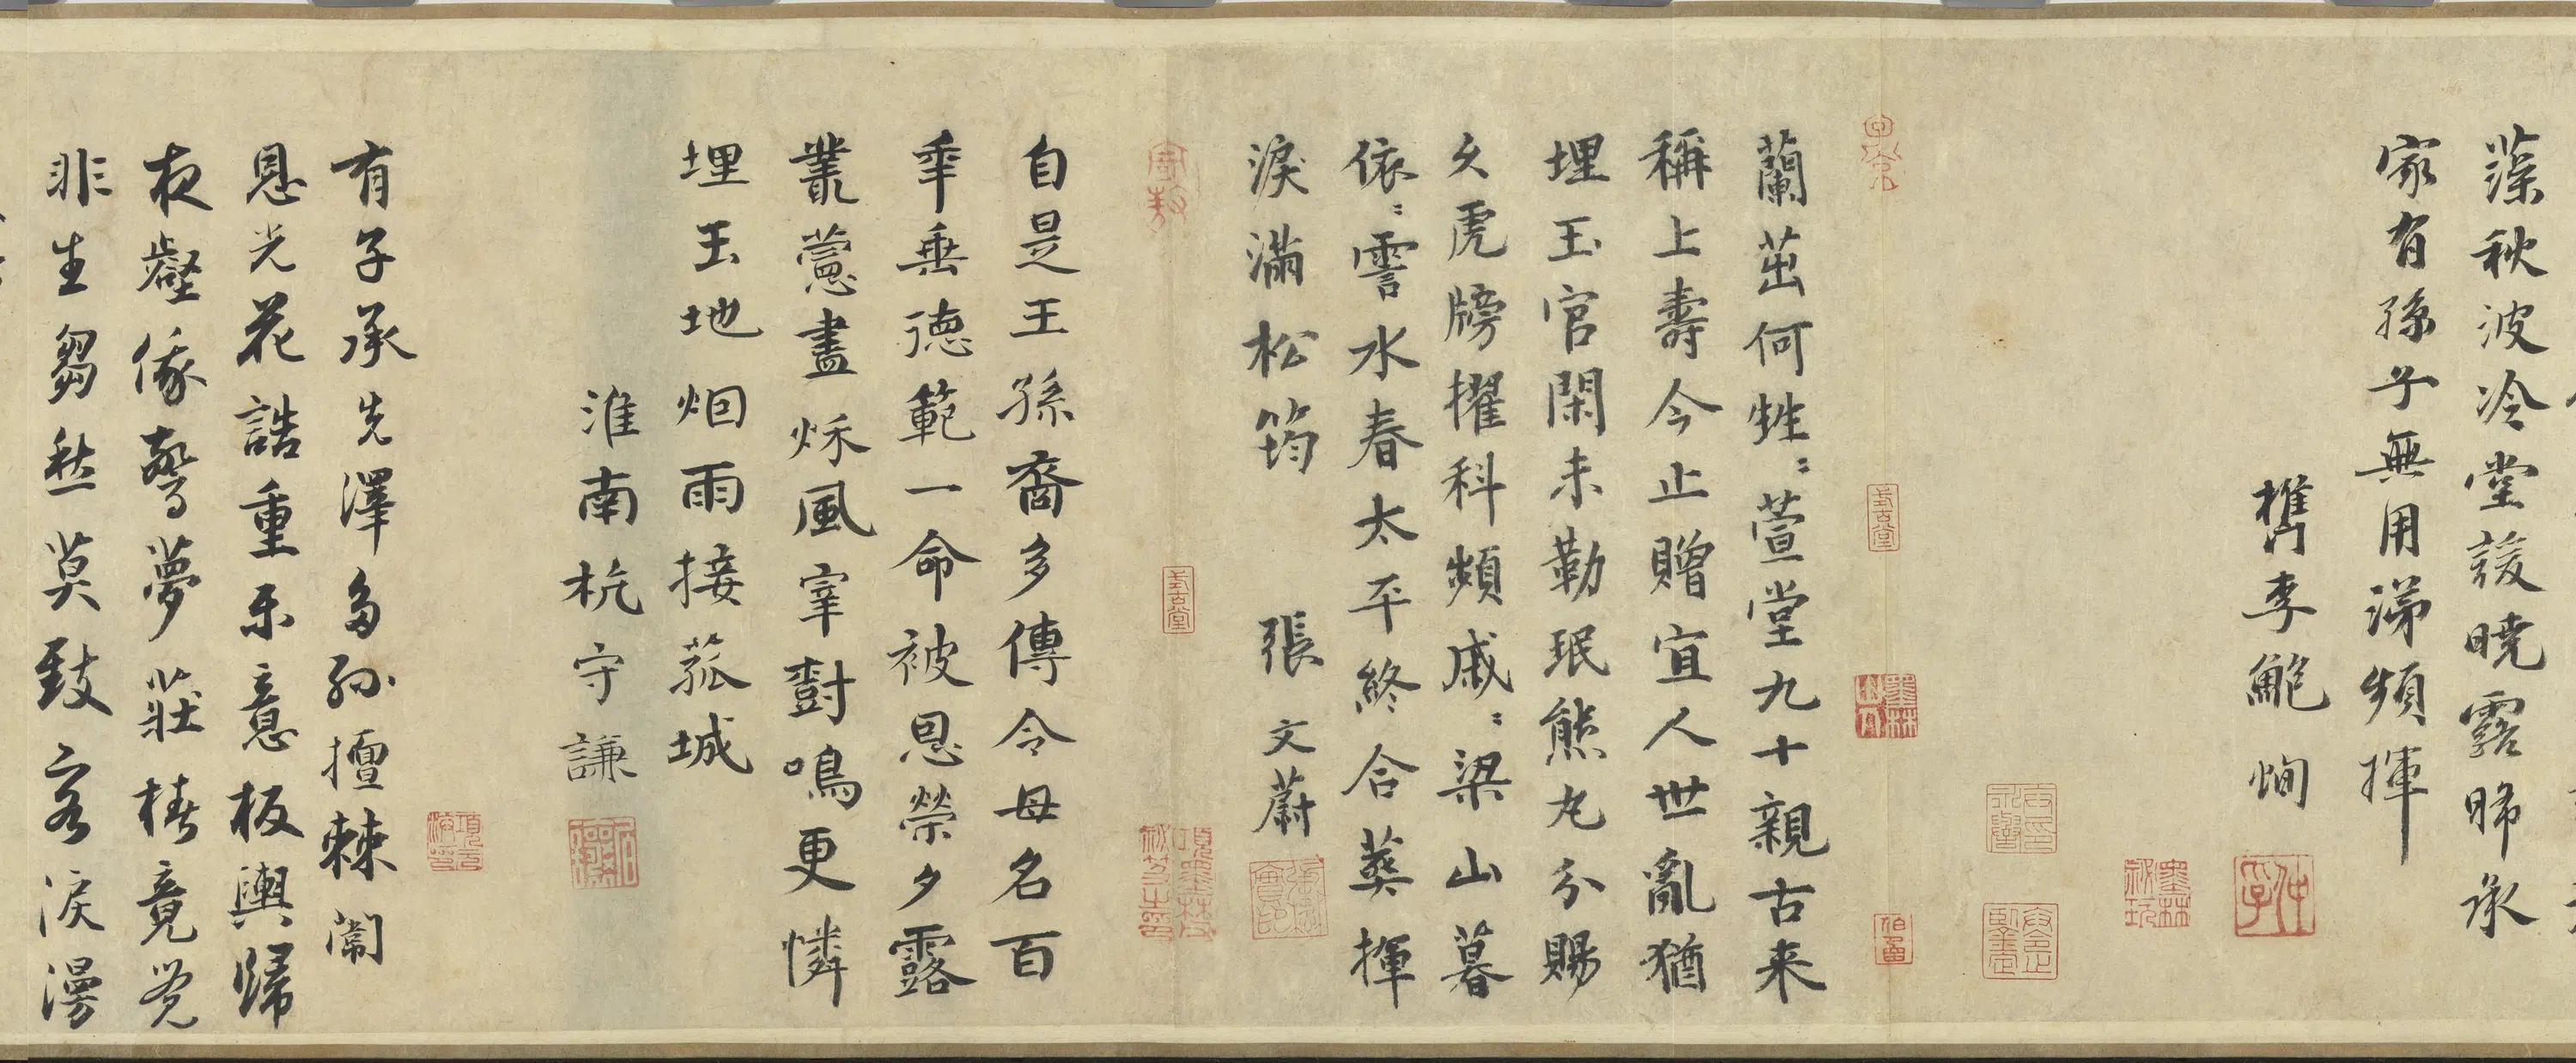 藻秋波冷堂萱曉露晞承
家有孫子無用涕頻揮
檇李鮑恂
蘭茁何牲〻萱堂九十親古来
稱上壽今止贈宜人世亂猶
埋玉官閑未勒珉熊丸分賜
久虎牓擢科頻戚〻梁山暮
依〻霅水春太平終合葬揮
淚滿松筠 張文蔚
自是王孫裔多傳令母名百
年垂德範一命被恩榮夕露
叢萱盡秋風宰對鳴更憐
埋玉地烟雨接菰城
淮南杭守謙
有子承先澤多孫擅棘闈
恩光花誥重樂意板輿歸
夜壑俄驚夢莊椿竟覺
非生芻愁莫致客淚漫